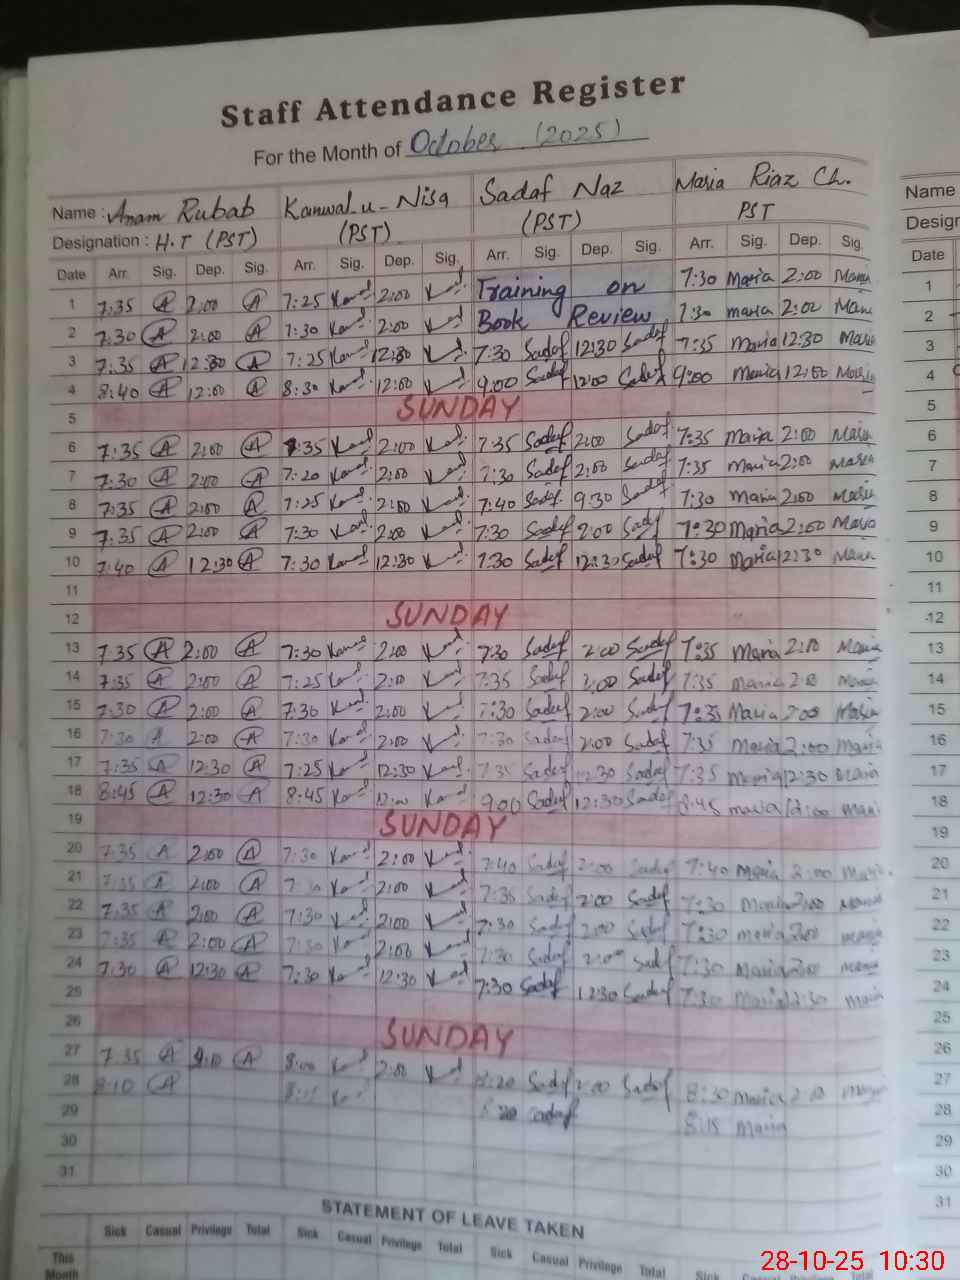 Staff Attendance Register
For the Month of October (2025)
Name : Anam Rubab Kanwal-u-Nisa Sadaf Naz Maria Riaz Ch. Name
Designation : H.T (PST) (PST) (PST) PST Design
Date Arr. Sig. Dep. Sig. Arr. Sig. Dep. Sig. Arr. Sig. Dep. Sig. Arr. Sig. Dep. Sig. Date
1 7:35 A 2:00 A 7:25 2:00 Training on 7:30 Maria 2:00 1
2 7:30 A 2:00 A 7:30 2:00 Book Review 7:30 maria 2:00 2
3 7:35 A 12:30 A 7:25 12:30 7:30 Sadaf 12:30 Sadaf 7:35 Maria 12:30 Maria 3
4 8:40 A 12:00 A 8:30 12:00 9:00 Sadaf 12:00 Sadaf 9:00 Maria 12:00 Maria 4
5 SUNDAY 5
6 7:35 A 2:00 A 7:35 2:00 7:35 Sadaf 2:00 Sadaf 7:35 Maria 2:00 Maria 6
7 7:30 A 2:00 A 7:20 2:00 7:30 Sadaf 2:00 Sadaf 7:35 Maria 2:00 Maria 7
8 7:35 A 2:00 A 7:25 2:00 7:40 Sadaf 9:30 Sadaf 7:30 Maria 2:00 Maria 8
9 7:35 A 2:00 A 7:30 2:00 7:30 Sadaf 2:00 Sadaf 7:30 Maria 2:00 Maria 9
10 7:40 A 12:30 A 7:30 12:30 7:30 Sadaf 12:30 Sadaf 7:30 Maria 12:30 Maria 10
11 11
12 SUNDAY 12
13 7:35 A 2:00 A 7:30 2:00 7:30 Sadaf 2:00 Sadaf 7:35 Maria 2:00 Maria 13
14 7:35 A 2:00 A 7:25 2:00 7:35 Sadaf 2:00 Sadaf 7:35 Maria 2:00 Maria 14
15 7:30 A 2:00 A 7:30 2:00 7:30 Sadaf 2:00 Sadaf 7:35 Maria 2:00 Maria 15
16 7:30 A 2:00 A 7:30 2:00 7:30 Sadaf 2:00 Sadaf 7:35 Maria 2:00 Maria 16
17 7:35 A 12:30 A 7:25 12:30 7:35 Sadaf 12:30 Sadaf 7:35 Maria 12:30 Maria 17
18 8:45 A 12:30 A 8:45 12:00 9:00 Sadaf 12:30 Sadaf 8:45 maria 12:00 Maria 18
19 SUNDAY 19
20 7:35 A 2:00 A 7:30 2:00 7:40 Sadaf 2:00 Sadaf 7:40 Maria 2:00 Maria 20
21 7:35 A 2:00 A 2:00 7:35 Sadaf 2:00 Sadaf 7:30 Maria 2:00 21
22 7:35 A 2:00 A 7:30 2:00 7:30 Sadaf 2:00 Sadaf 7:30 Maria 2:00 22
23 7:35 A 2:00 A 7:30 2:00 7:30 Sadaf 2:00 Sadaf 7:30 Maria 2:00 23
24 7:30 A 12:30 A 7:30 12:30 7:30 Sadaf 12:30 Sadaf 7:30 Maria 12:30 24
25 25
26 SUNDAY 26
27 7:35 A A 8:00 2:00 8:20 Sadaf 2:00 Sadaf 8:30 Maria 2:00 27
28 8:10 A Sadaf 8:15 Maria 28
29 29
30 30
31 31
STATEMENT OF LEAVE TAKEN
Sick Casual Privilege Total Sick Casual Privilege Total Sick Casual Privilege Total Sick Casual Privilege Total
This
Month
28-10-25 10:30